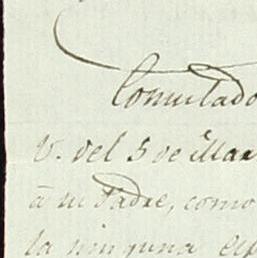 Consulado
V. del 5 de Mar
á su Padre, como
la ninguna